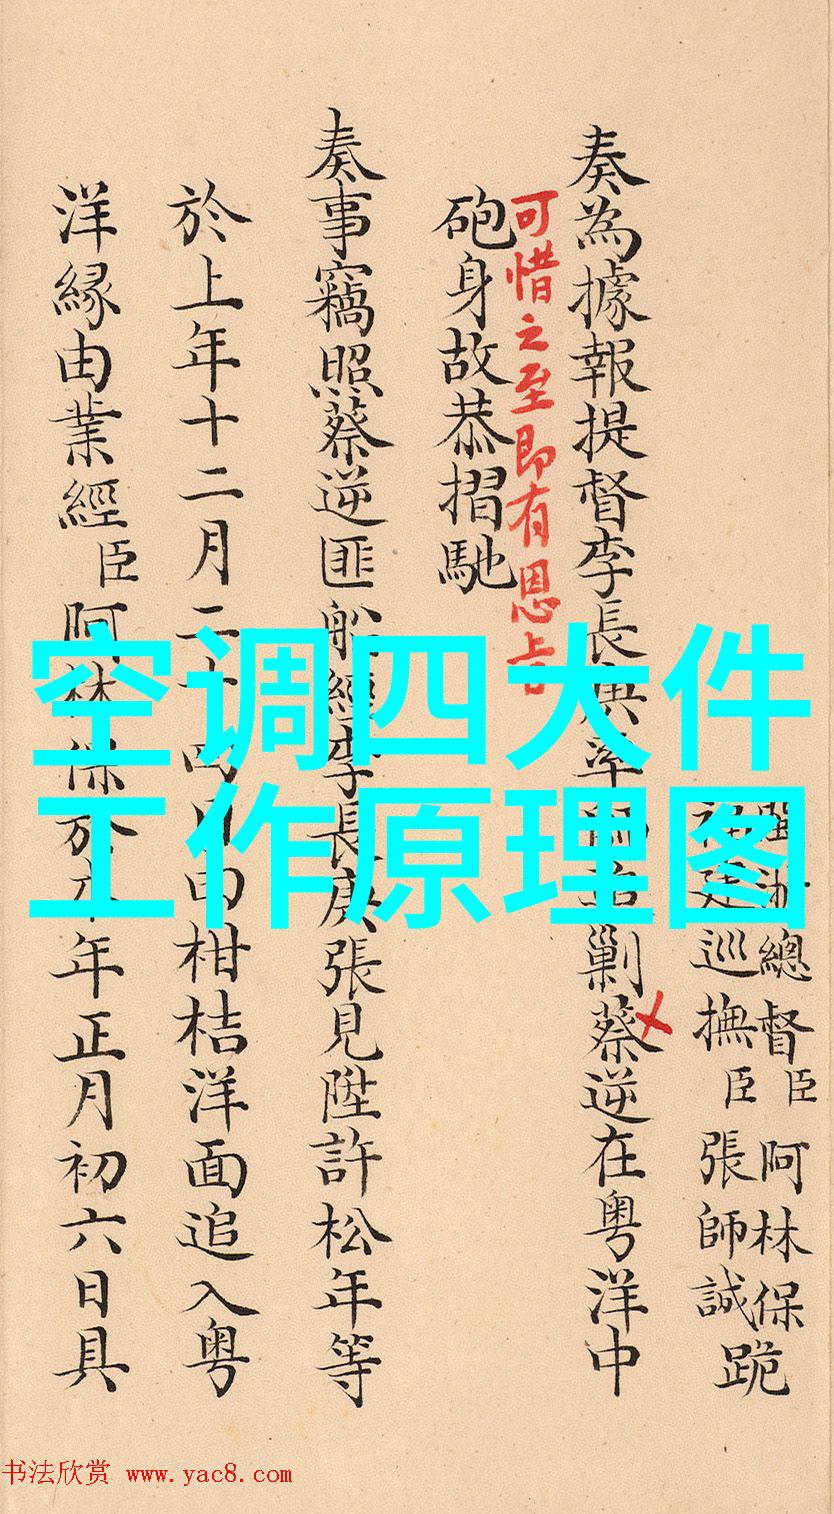 閩浙總督臣阿林保
福建巡撫臣張師誠跪
奏為據報提督李長庚率剿蔡逆在粵洋中
可惜之至即有恩旨
砲身故恭摺馳
奏事竊照蔡逆匪船經李長庚張見陞許松年等
於上年十二月二十四日由柑桔洋面追入粵
洋緣由業經臣阿林保於本年正月初六日具
空调四大件
工作原理图
书法欣赏 www.yac8.com